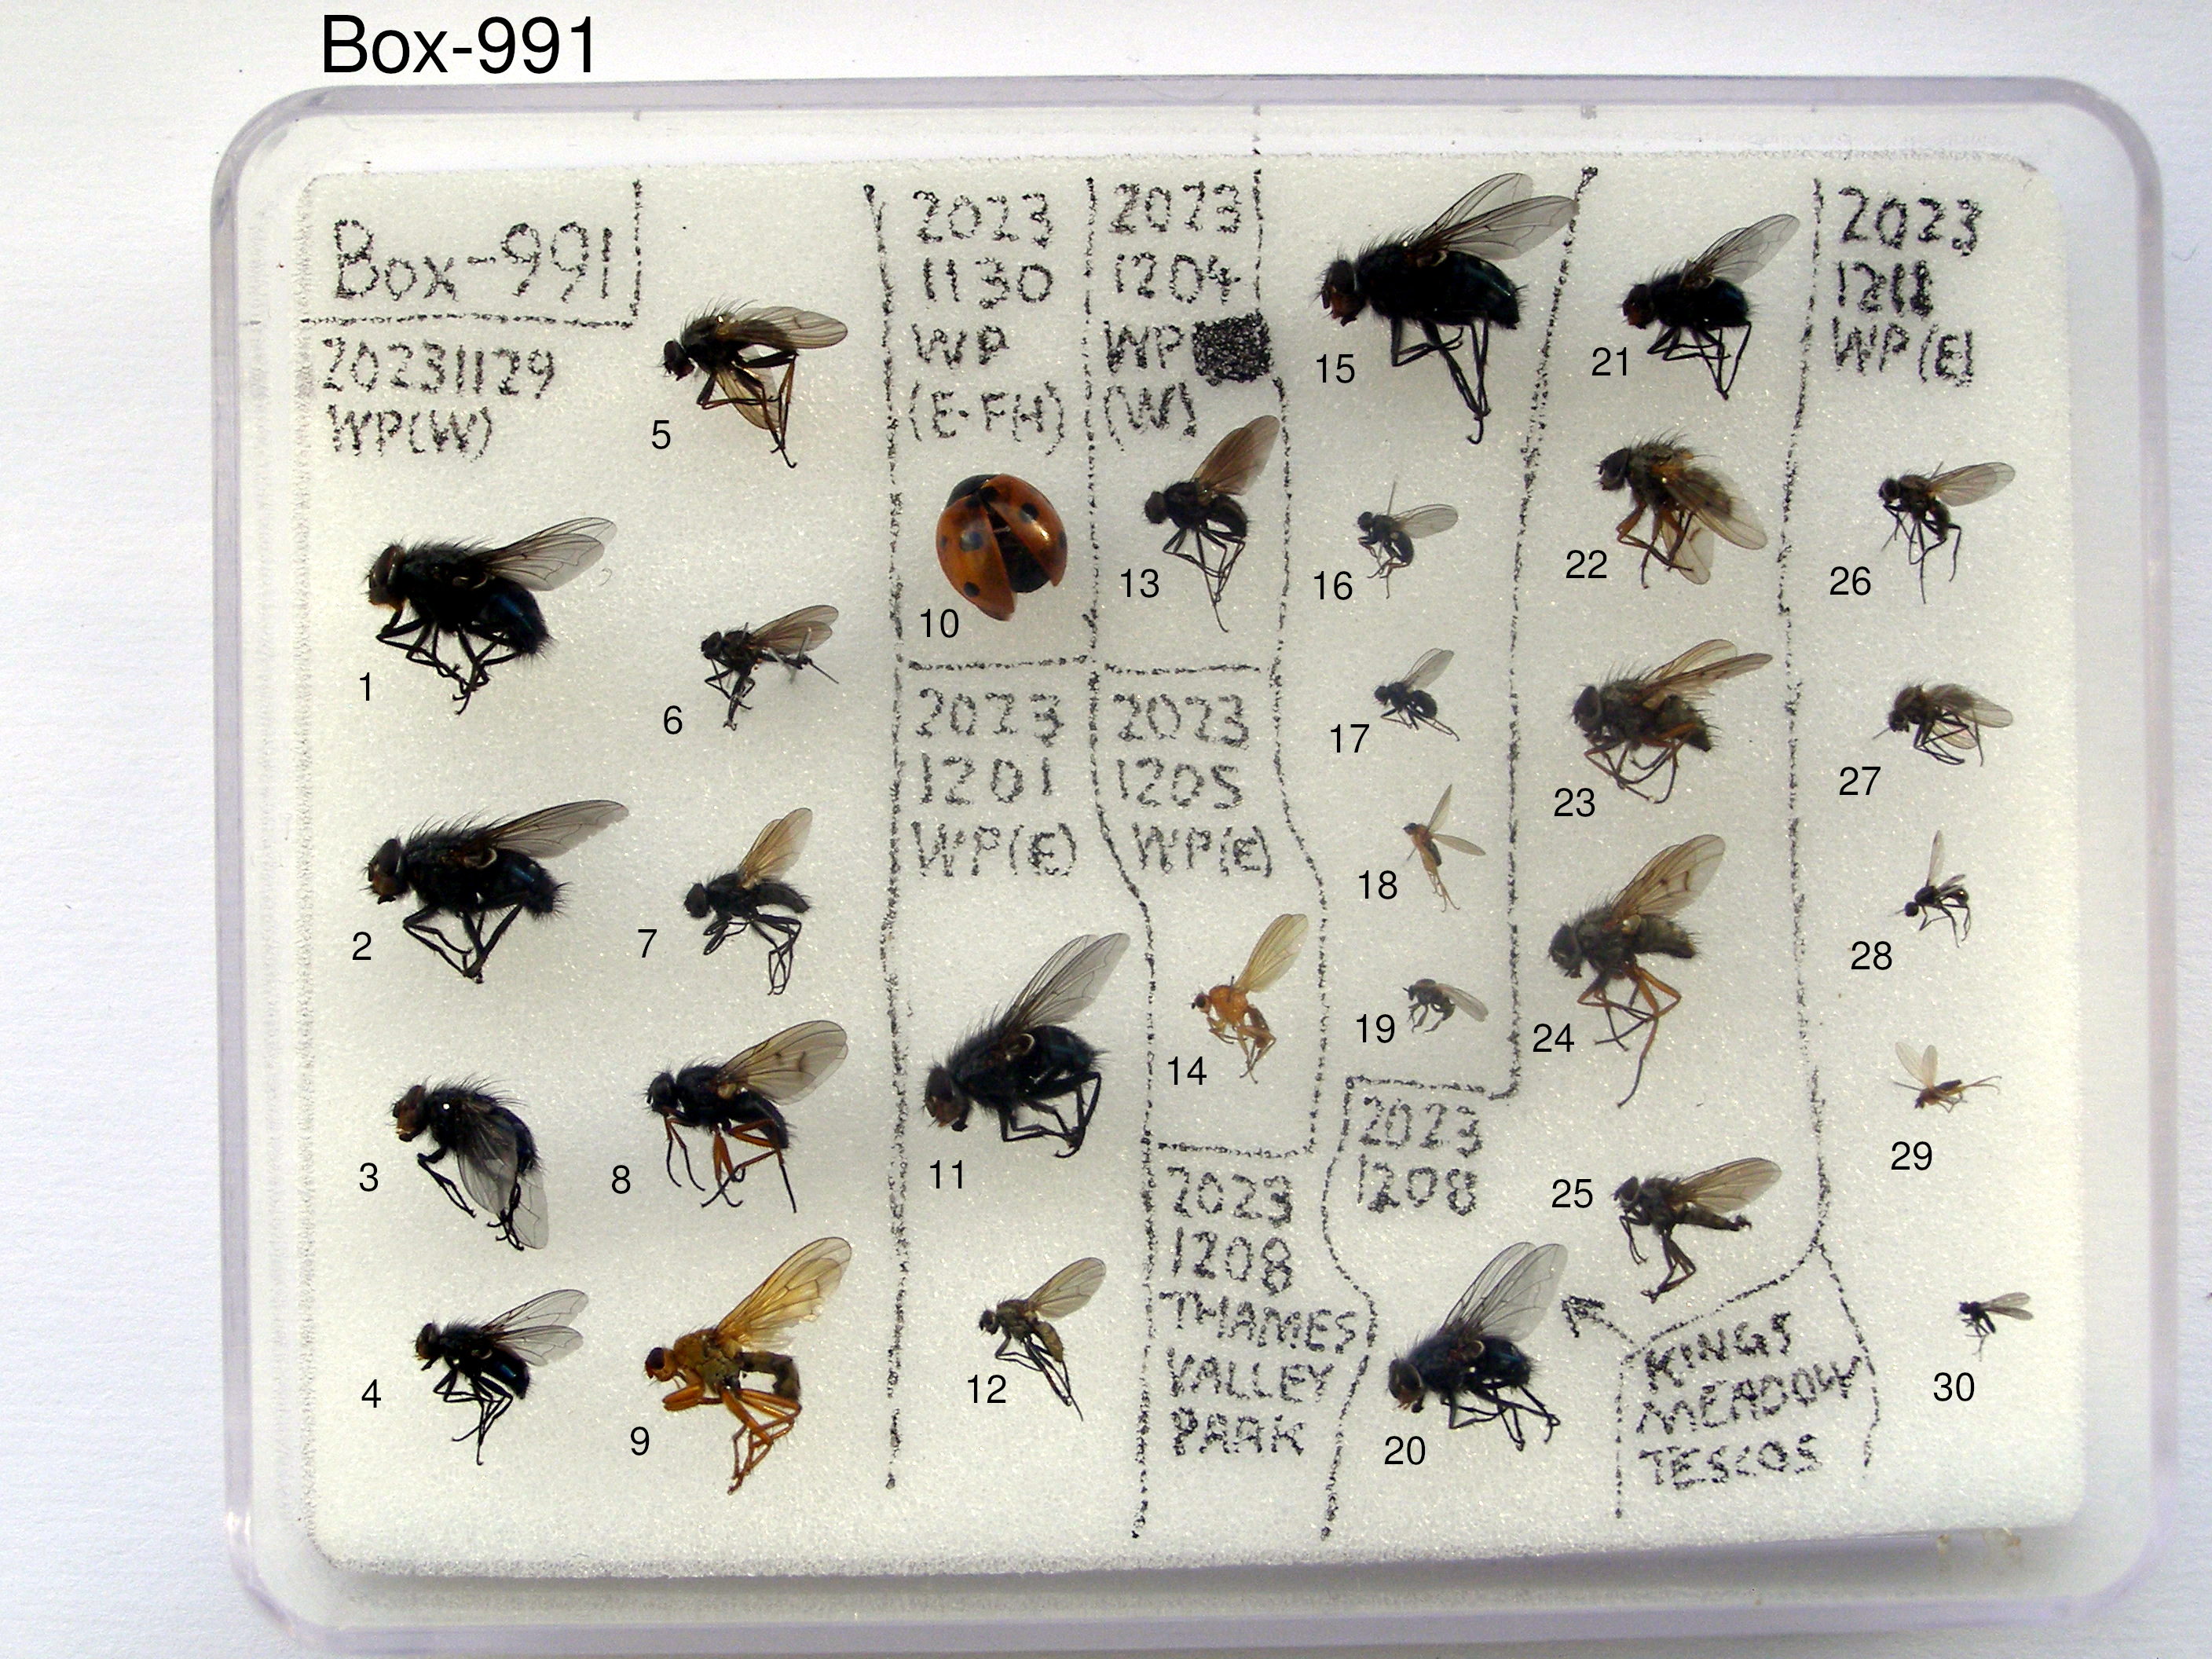 Box-991
Box-991
20231129
WP(W)
1
2
3
4
5
6
7
8
9
2023
1130
WP
(E-FH)
10
2023
1201
WP(E)
11
12
2023
1204
WP
(W)
13
2023
1205
WP(E)
14
2023
1208
THAMES
VALLEY
PARK
15
16
17
18
19
2023
1208
20
KINGS
MEADOW
TESCOS
21
22
23
24
25
2023
WP(E)
26
27
28
29
30